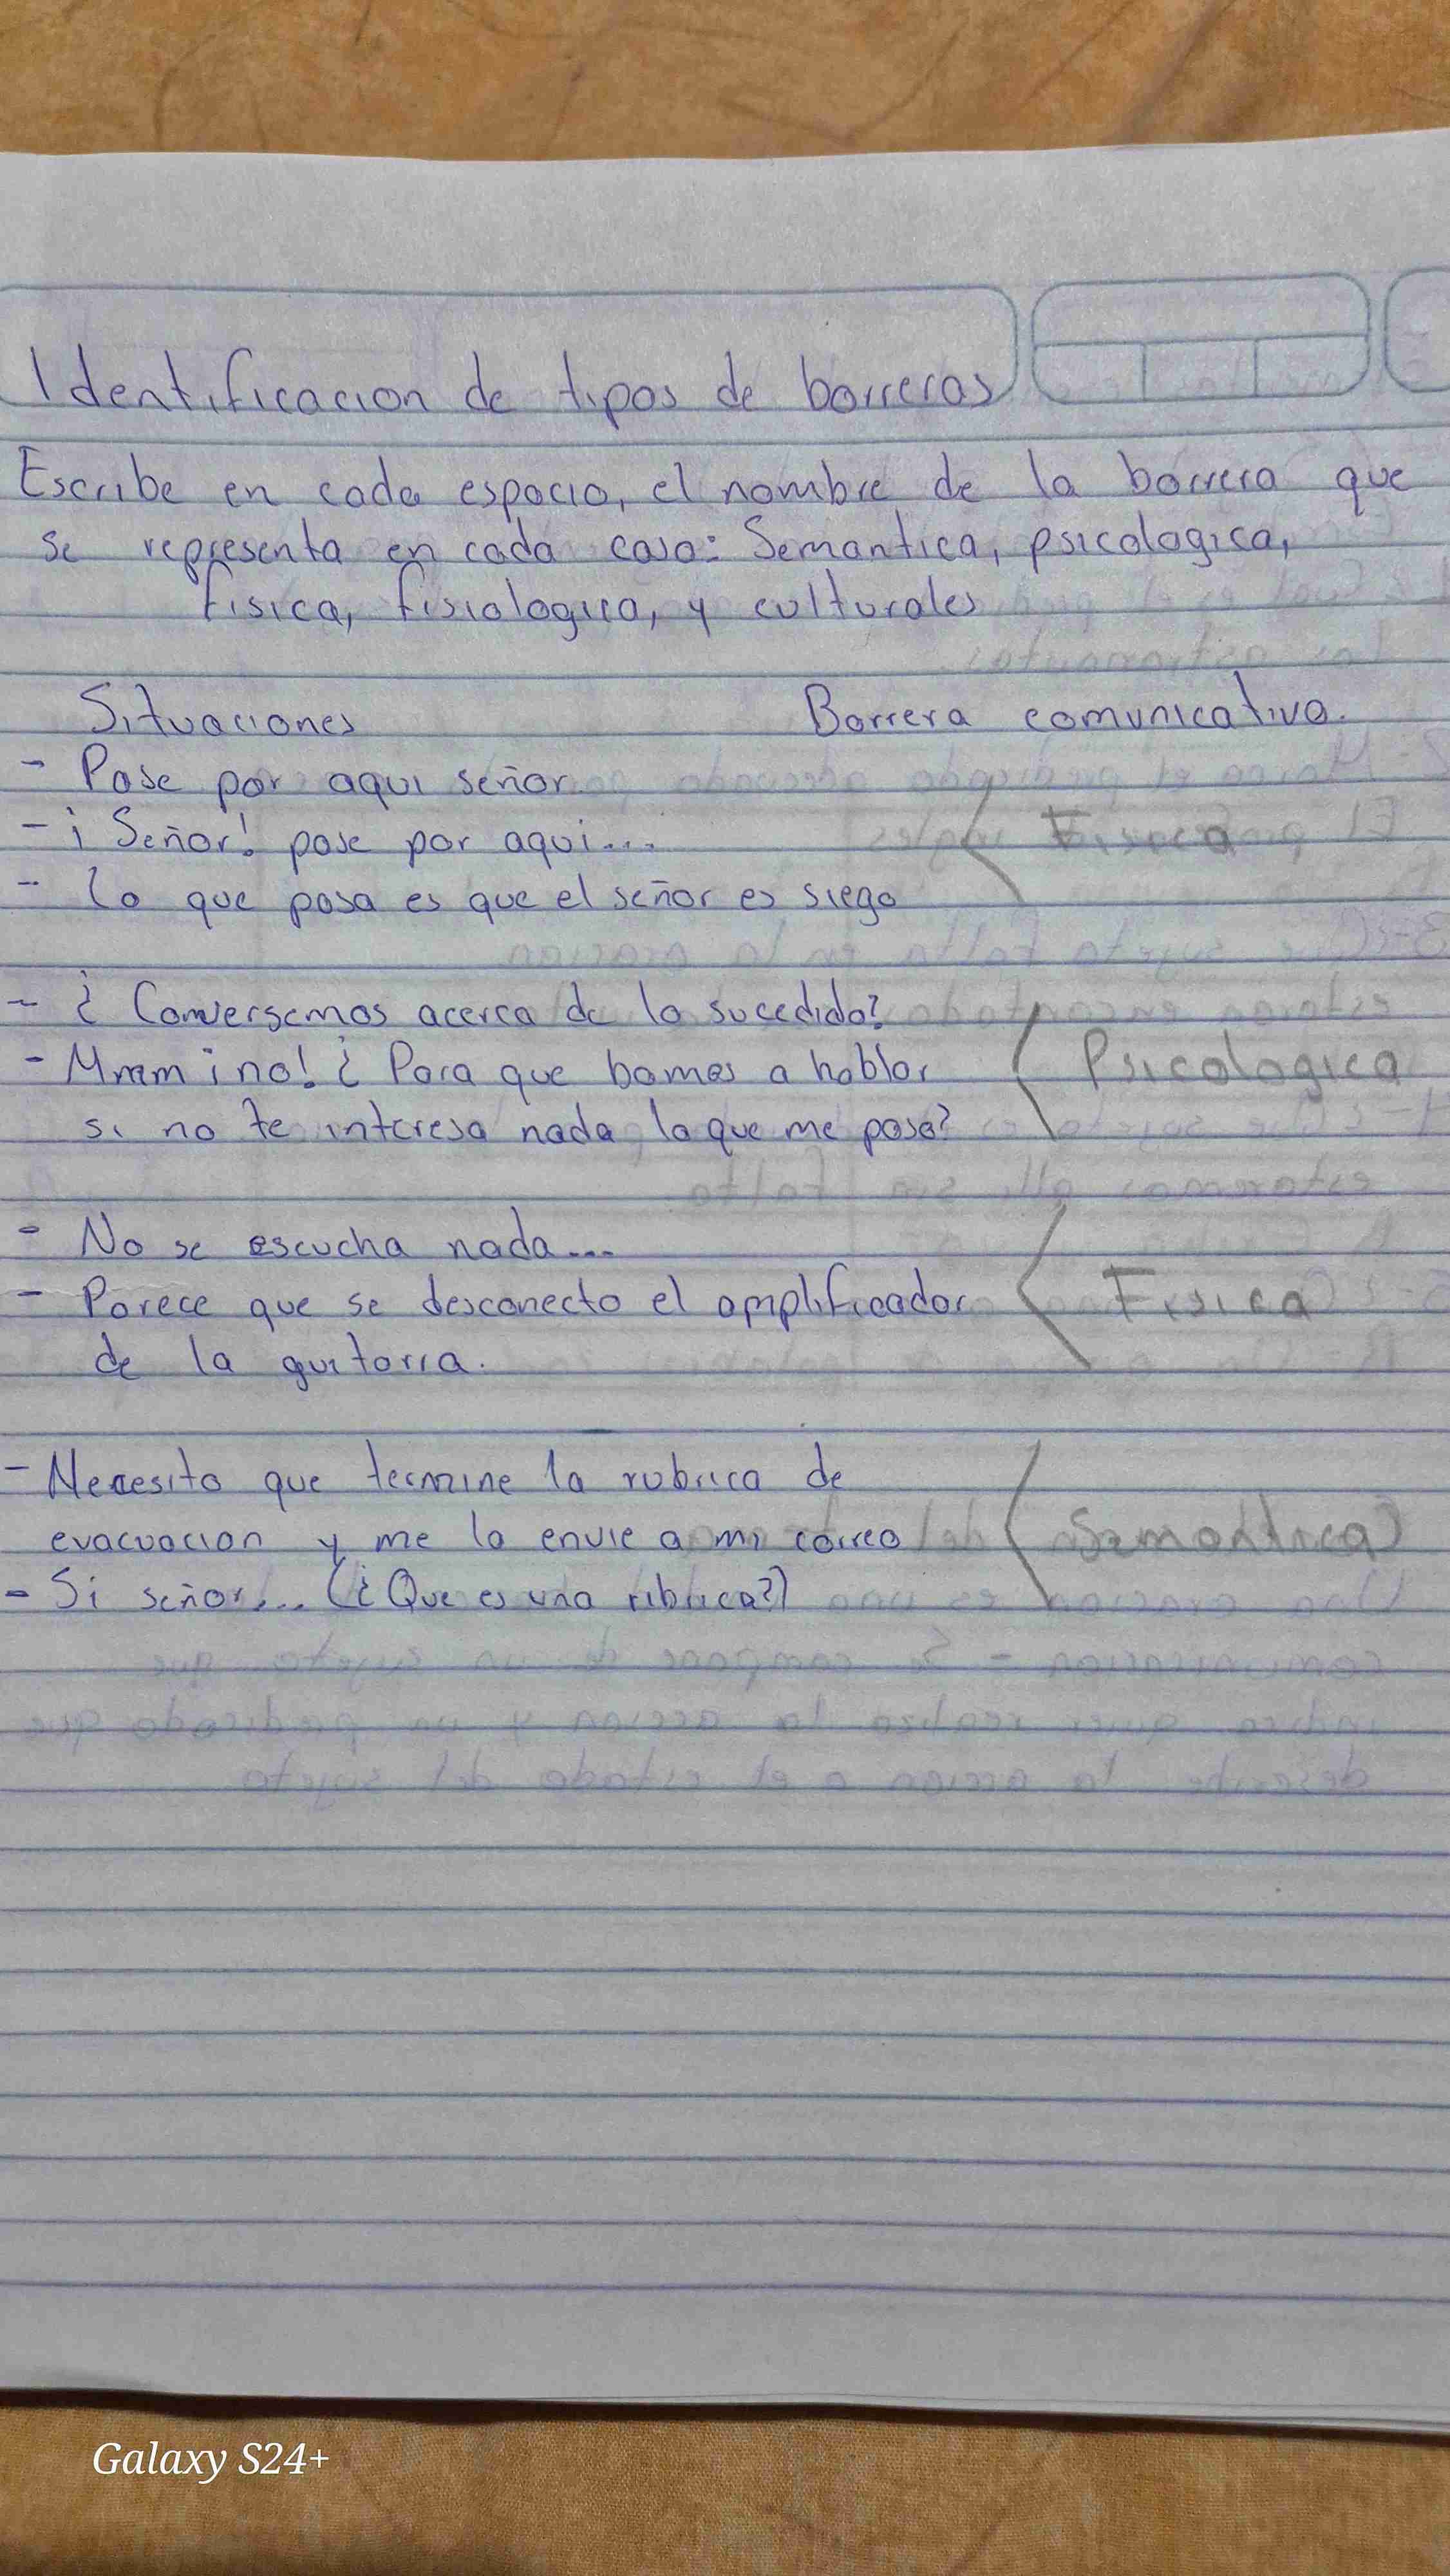 Identificacion de tipos de barreras
Escribe en cada espacio, el nombre de la barrera que
se representa en cada caso: Semantica, psicologica,
fisica, fisiologica, y culturales
Situaciones Barrera comunicativa.
- Pase por aqui señor
- ¡Señor! pase por aqui... Fisica
- Lo que pasa es que el señor es siego
- ¿Conversemos acerca de lo sucedido?
- Mmm ¡no! ¿Para que bamos a hablar Psicologica
si no te interesa nada lo que me pasa?
- No se escucha nada...
- Parece que se desconecto el amplificador Fisica
de la guitarra.
- Necesito que termine la rubrica de
evacuacion y me la envie a mi correo Semantica
- Si señor... (¿Que es una ribrica?)
Galaxy S24+